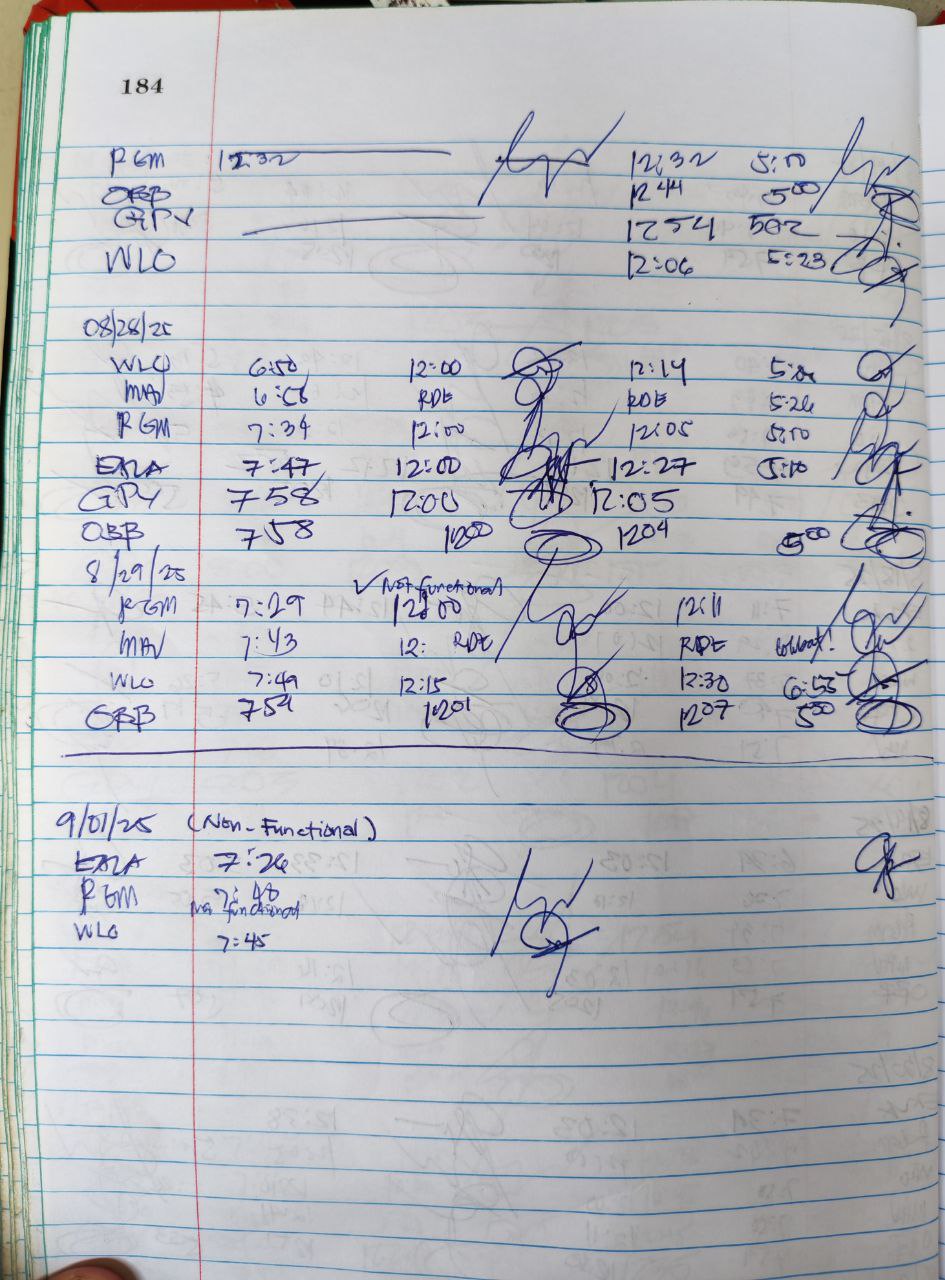 184
RGM 12:32 12:32 5:00
OBB 12 44 5 00
GPY 12 54 502
WLO 12:06 5:23
08/28/25
WLO 6:50 12:00 12:14
MAV 6:56 RDE RDE 5:26
RGM 7:34 12:00 12:05 5:00
EALA 7:47 12:00 12:27 5:10
GPY 7 58 12:00 12:05
OBB 7 58 1200 1204 5 00
8/29/25
✓ Not functional
RGM 7:29 12:00 12:11
MAV 7:43 12: RDE RDE
WLO 7:49 12:15 12:30 6:55
OBB 754 1201 1207 5 00
9/01/25 (Non-Functional)
EALA 7:26
RGM 7:48
functional
WLO 7:45